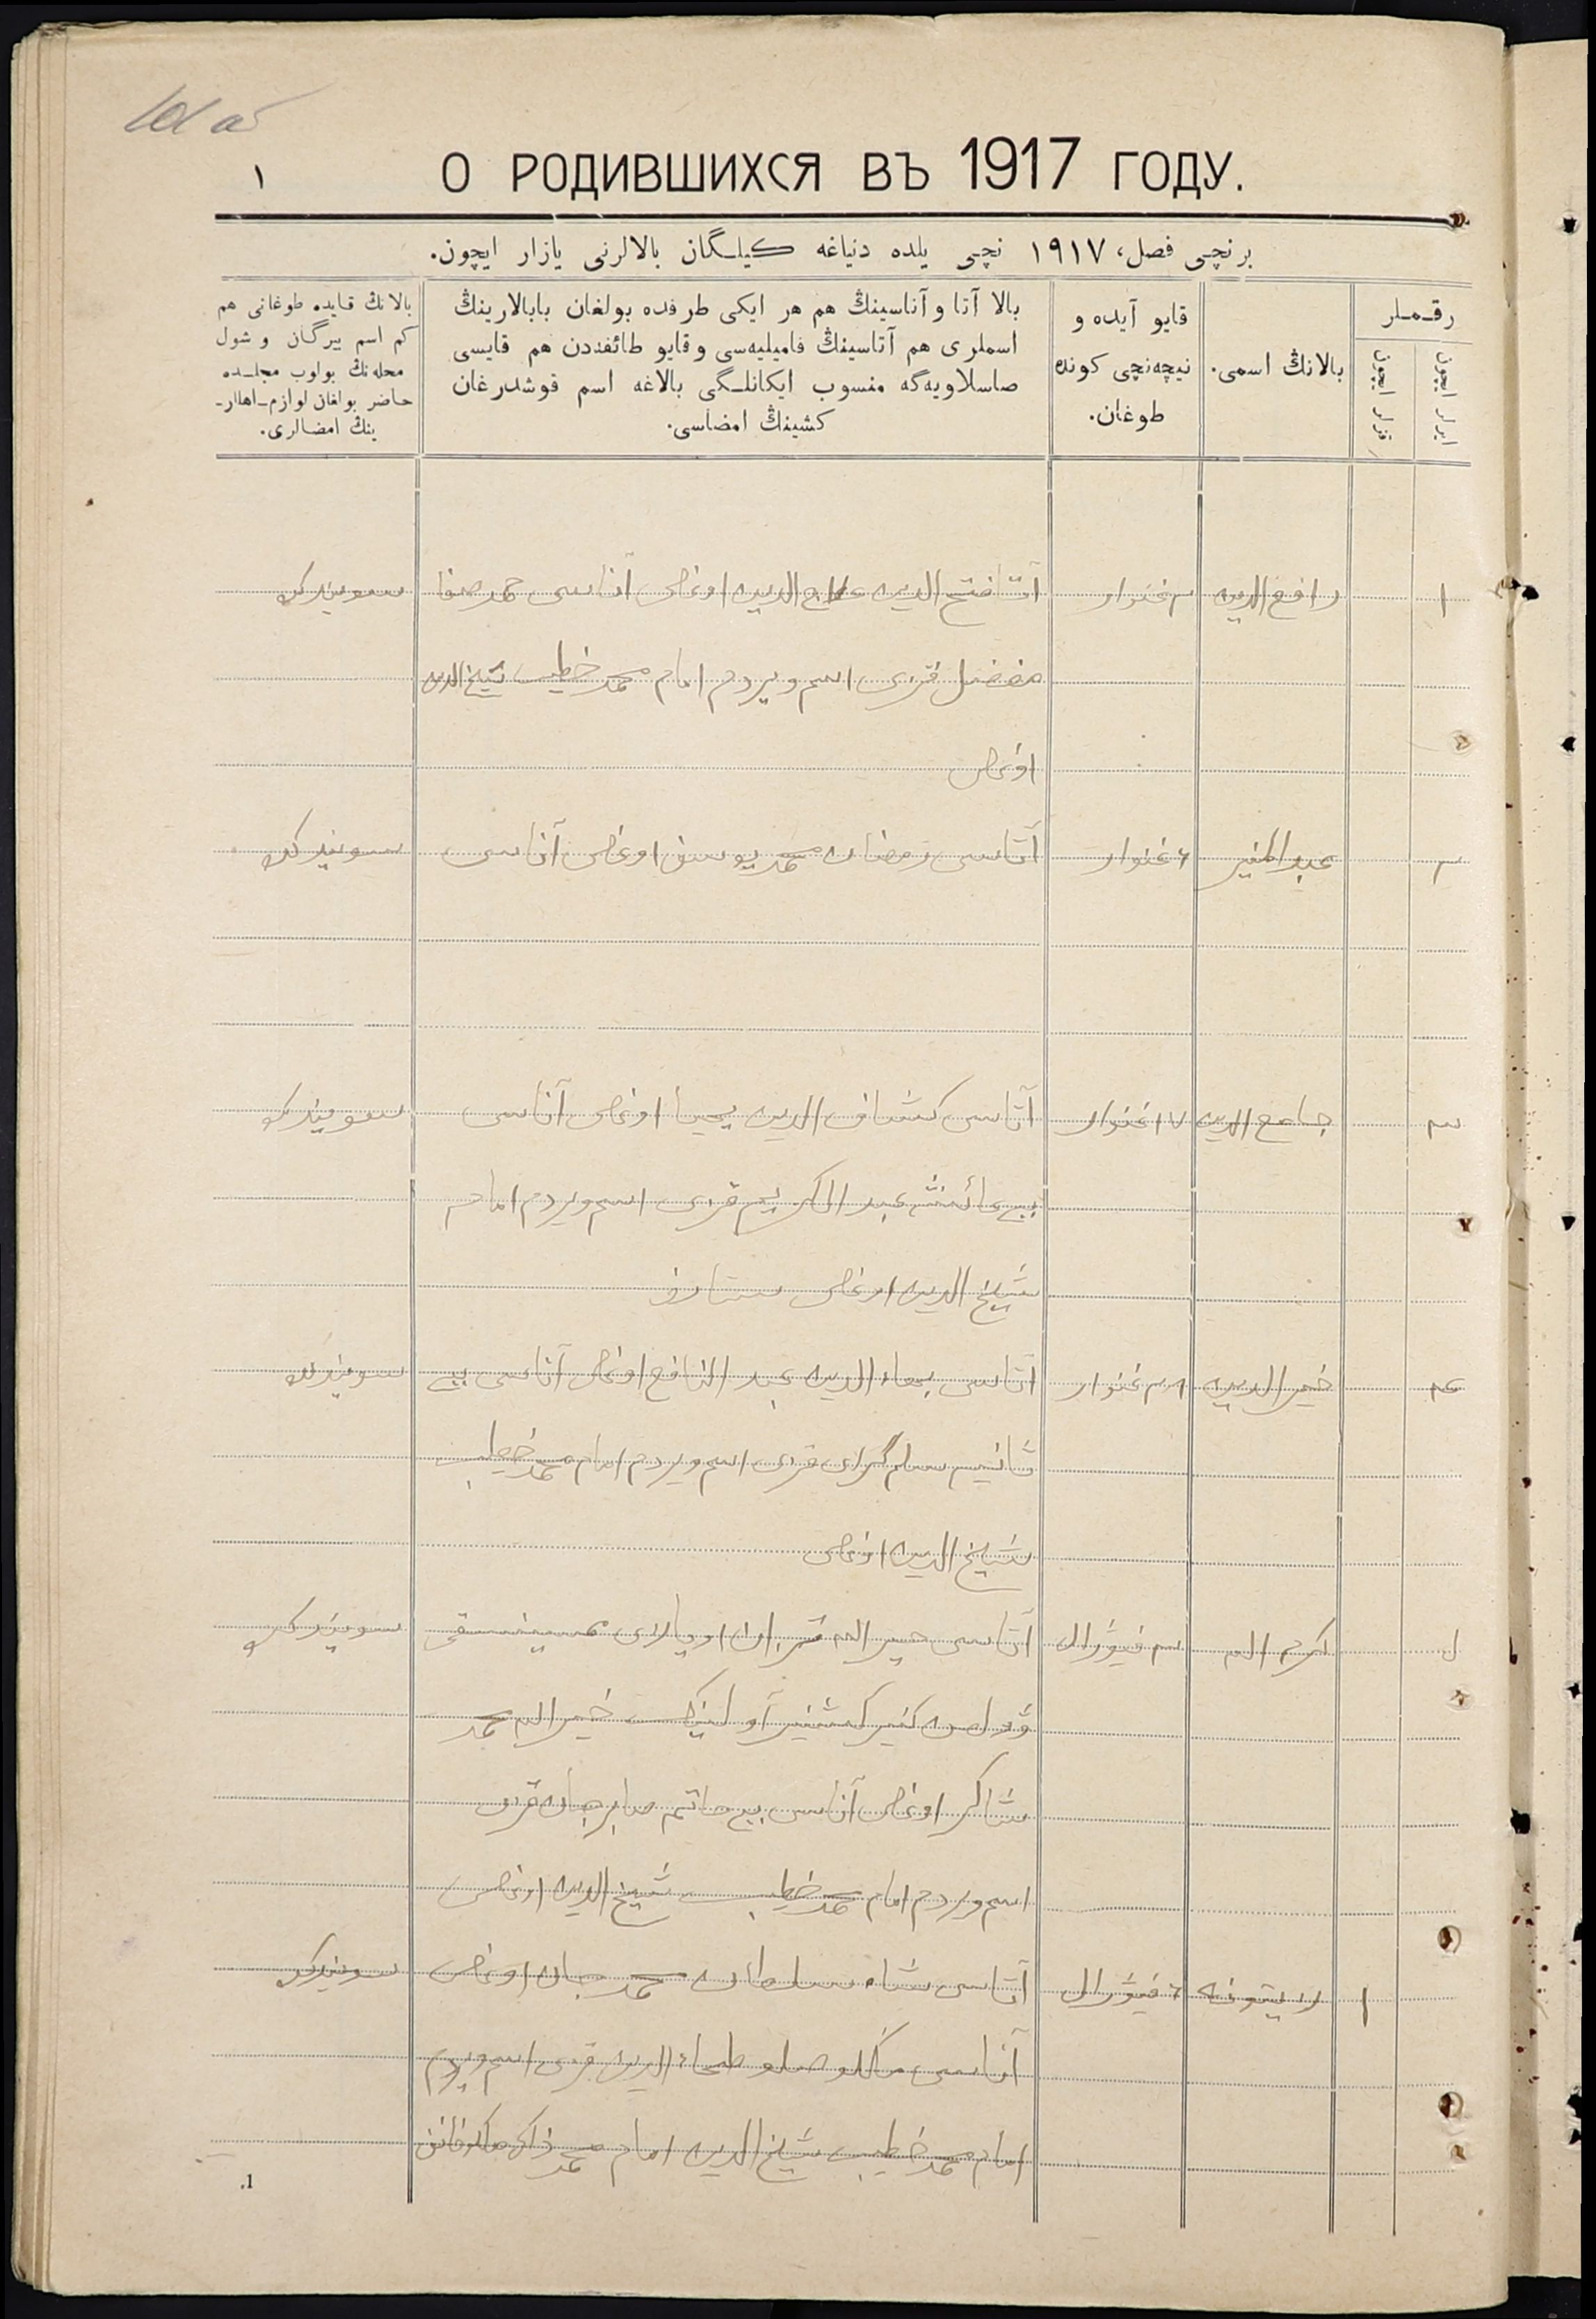 ١
О РОДИВШИХСЯ ВЪ 1917 ГОДУ.
برنچی فصل، ١٩١٧ نچی یلده دنیاغه كیلـگان بالالرنی یازار ایچون.
رقـمـلر
ایرلر ایچون
قزلر ایچون
بالانڭ اسمی.
قایو آیده و
نیچه‌نچی كونده
طوغان.
بالا آتا و آناسینڭ هم هر ایكی طرفده بولغان بابالارینڭ
اسملری هم آتاسینڭ فامیلیه‌سی و قایو طائفه‌دن هم قایسی
صاسلاویه‌گه منسوب ایكانلـگی بالاغه اسم قوشدرغان
كشینڭ امضاسی.
بالانڭ قایده طوغانی هم
كم اسم بیرگان و شول
محله‌نڭ بولوب مجلـده
حاضر بولغان لوازم اهللر-
ینڭ امضالری.
١ رافع الدین ٢ غنوار آتا فتح الدین علاج الدین اوغلی آناسی حمد صفا سویندك
مفضل قزی اسم ویردم امام محمد خطیب شیخ الدین
اوغلی
٢ عبد المنیر ٦ غنوار آتاسی رمضان محمد یوسف اوغلی آناسی سویندك
٣ جامع الدین ١٧ غنوار آتاسی كشاف الدین یحیا اوغلی آناسی سویندك
بیبی عائشه عبد الكریم قزی اسم ویردم امام
شیخ الدین اوغلی
٤ خیر الدین ٢٩ غنوار آتاسی بهاء الدین عبد النافع اوغلی آناسی بیبی سویندك
سلم گرای قزی اسم ویردم امام محمد خطیب
شیخ الدین اوغلی
٥ اكرم الله ٣ فیورال آتاسی سویندك
خیر الله محمد
شاكر اوغلی آناسی بیبی حاتم صابرجان قزی
اسم ویردم امام محمد خطیب شیخ الدین اوغلی
١ ٦ فیورال آتاسی شاه سلطان محمد جان اوغلی سویندك
آناسی قزی اسم ویردم
امام محمد خطیب شیخ الدین امام محمد ذاكر
1.